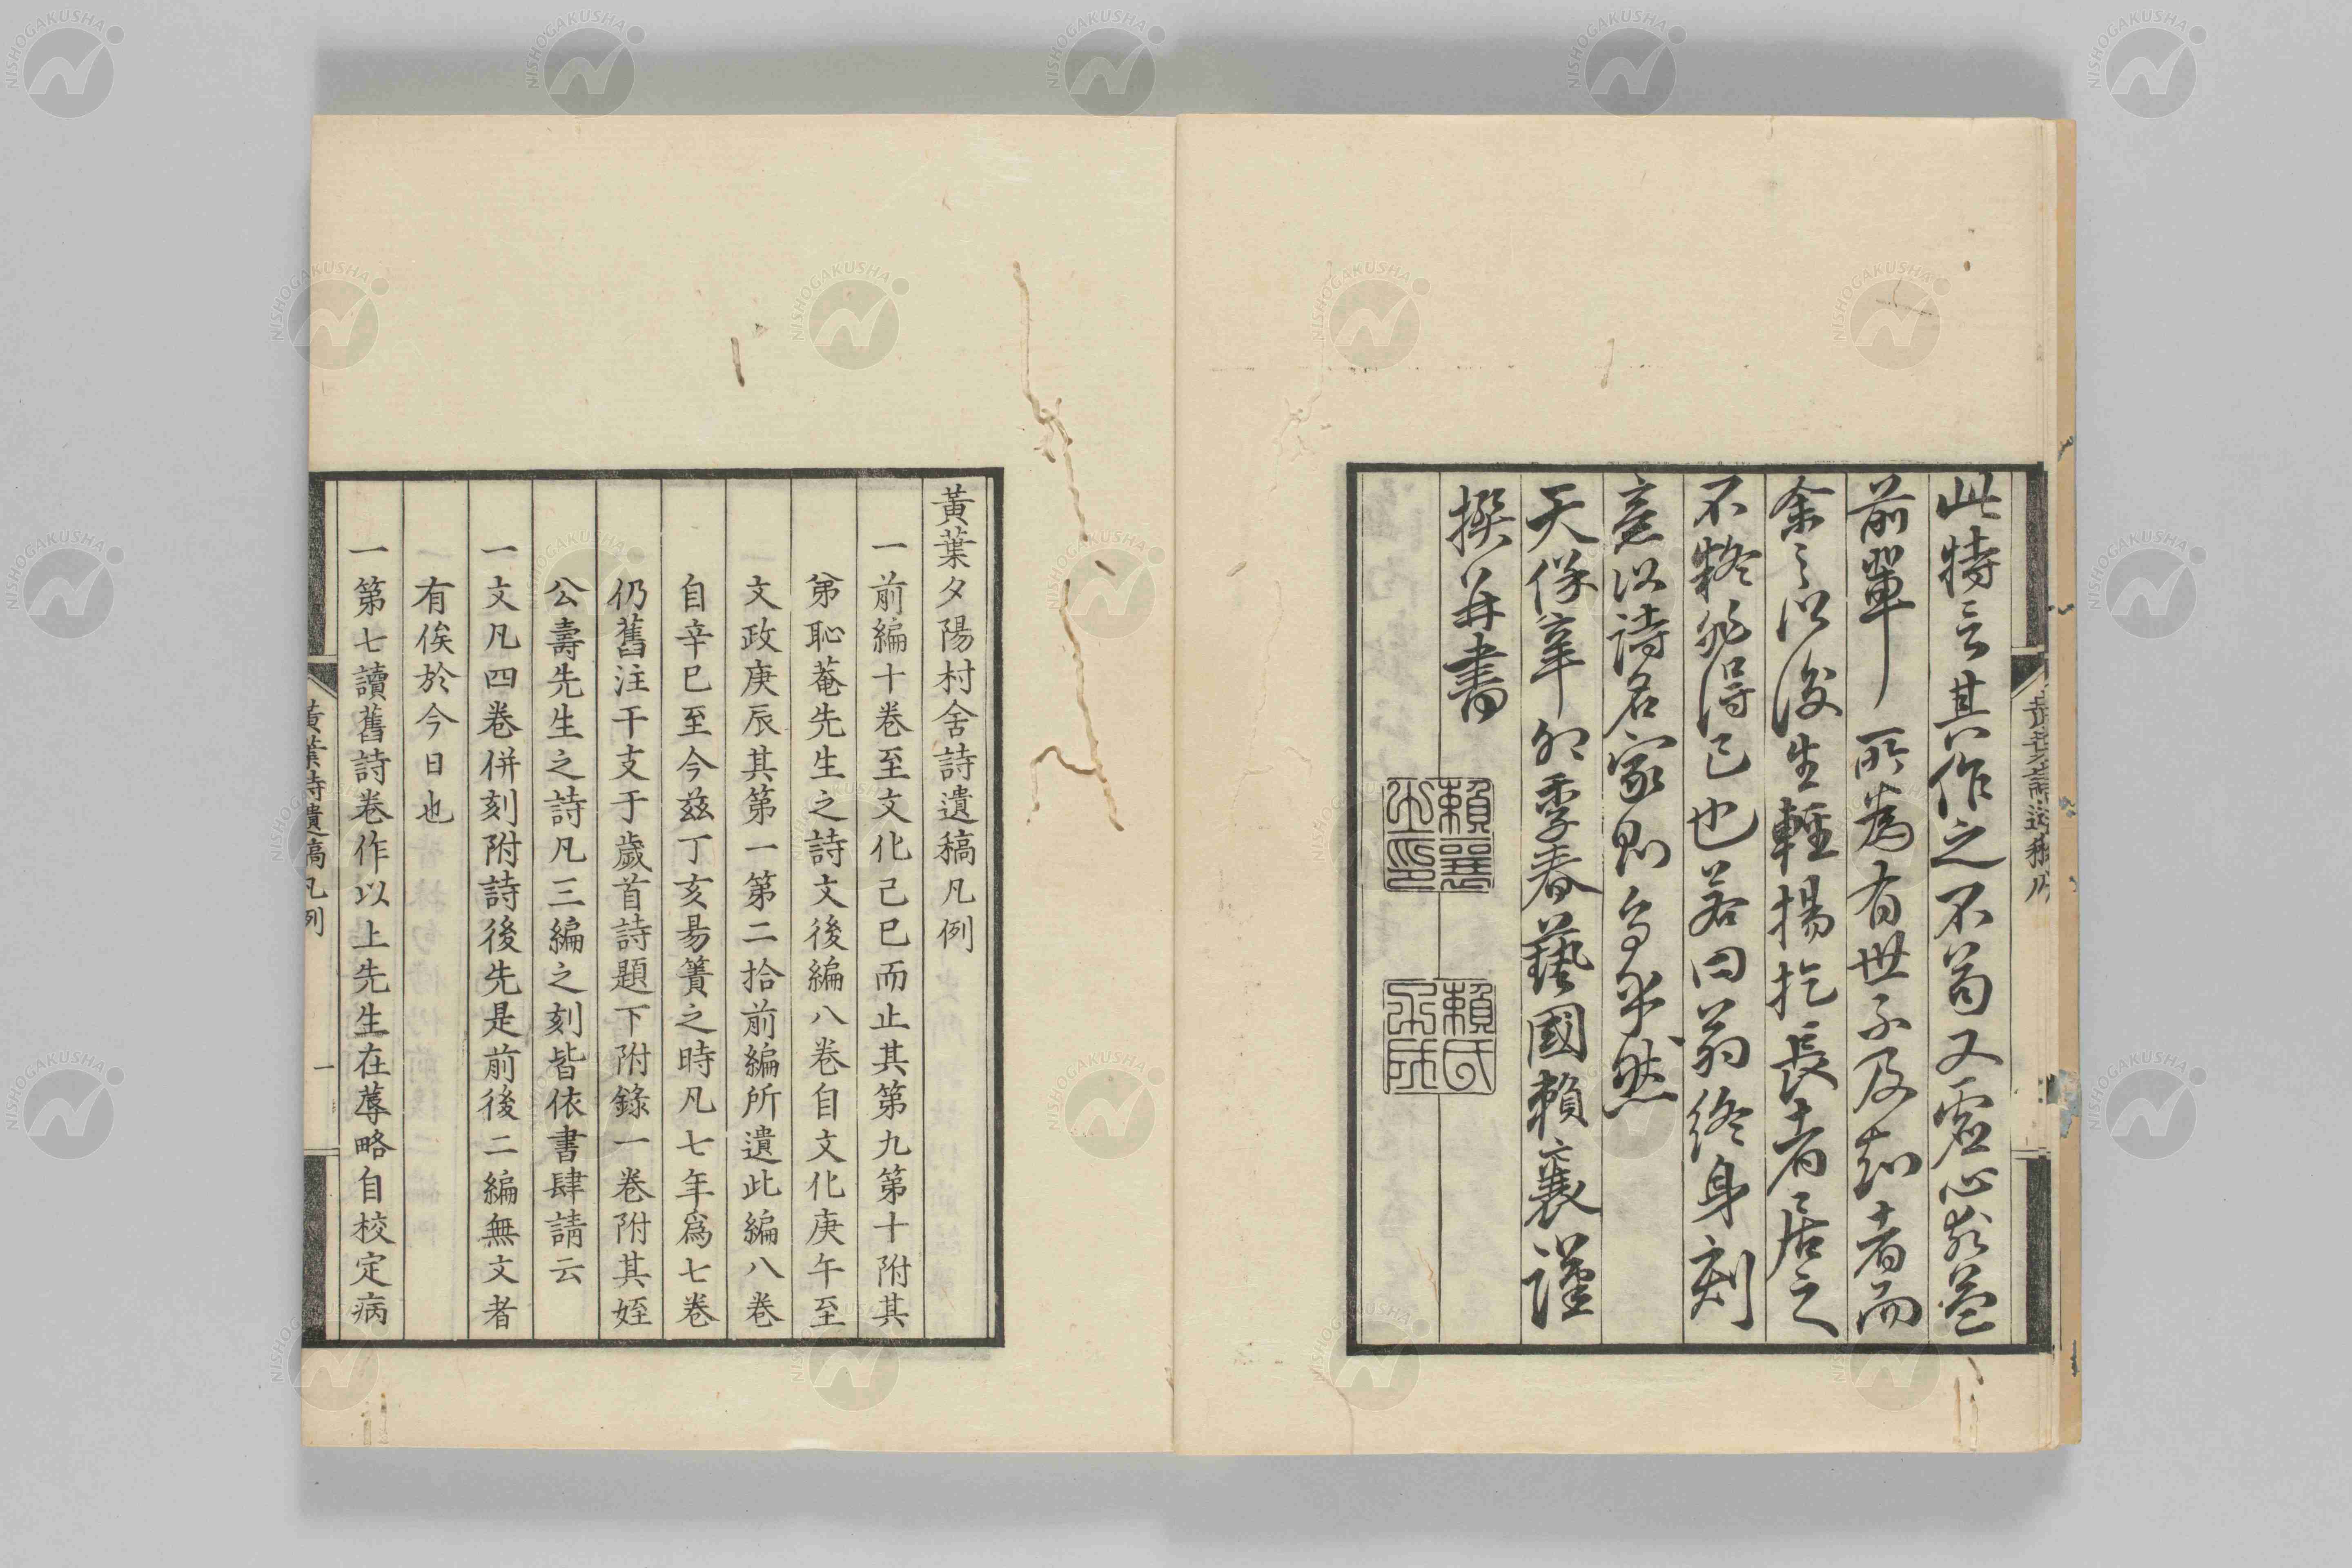 此特言其作之不苟又虛心求益
前輩所為有世不及知者而
余之以後生輕揚扢長者居之
不辭能得已也若曰翁終身刻
意以詩名家則烏乎然
天保辛卯季春藝國賴襄謹
撰并書
賴襄
賴氏
黃葉夕陽村舍詩遺稿凡例
一前編十卷至文化己巳而止其第九第十附其
弟恥菴先生之詩文後編八卷自文化庚午至
文政庚辰其第一第二拾前編所遺此編八卷
自辛巳至今茲丁亥易簀之時凡七年爲七卷
仍舊注干支于歲首詩題下附錄一卷附其姪
公壽先生之詩凡三編之刻皆依書肆請云
一文凡四卷併刻附詩後先是前後二編無文者
有俟於今日也
一第七讀舊詩卷作以上先生在蓐略自校定病
黃葉詩遺稿凡例
一